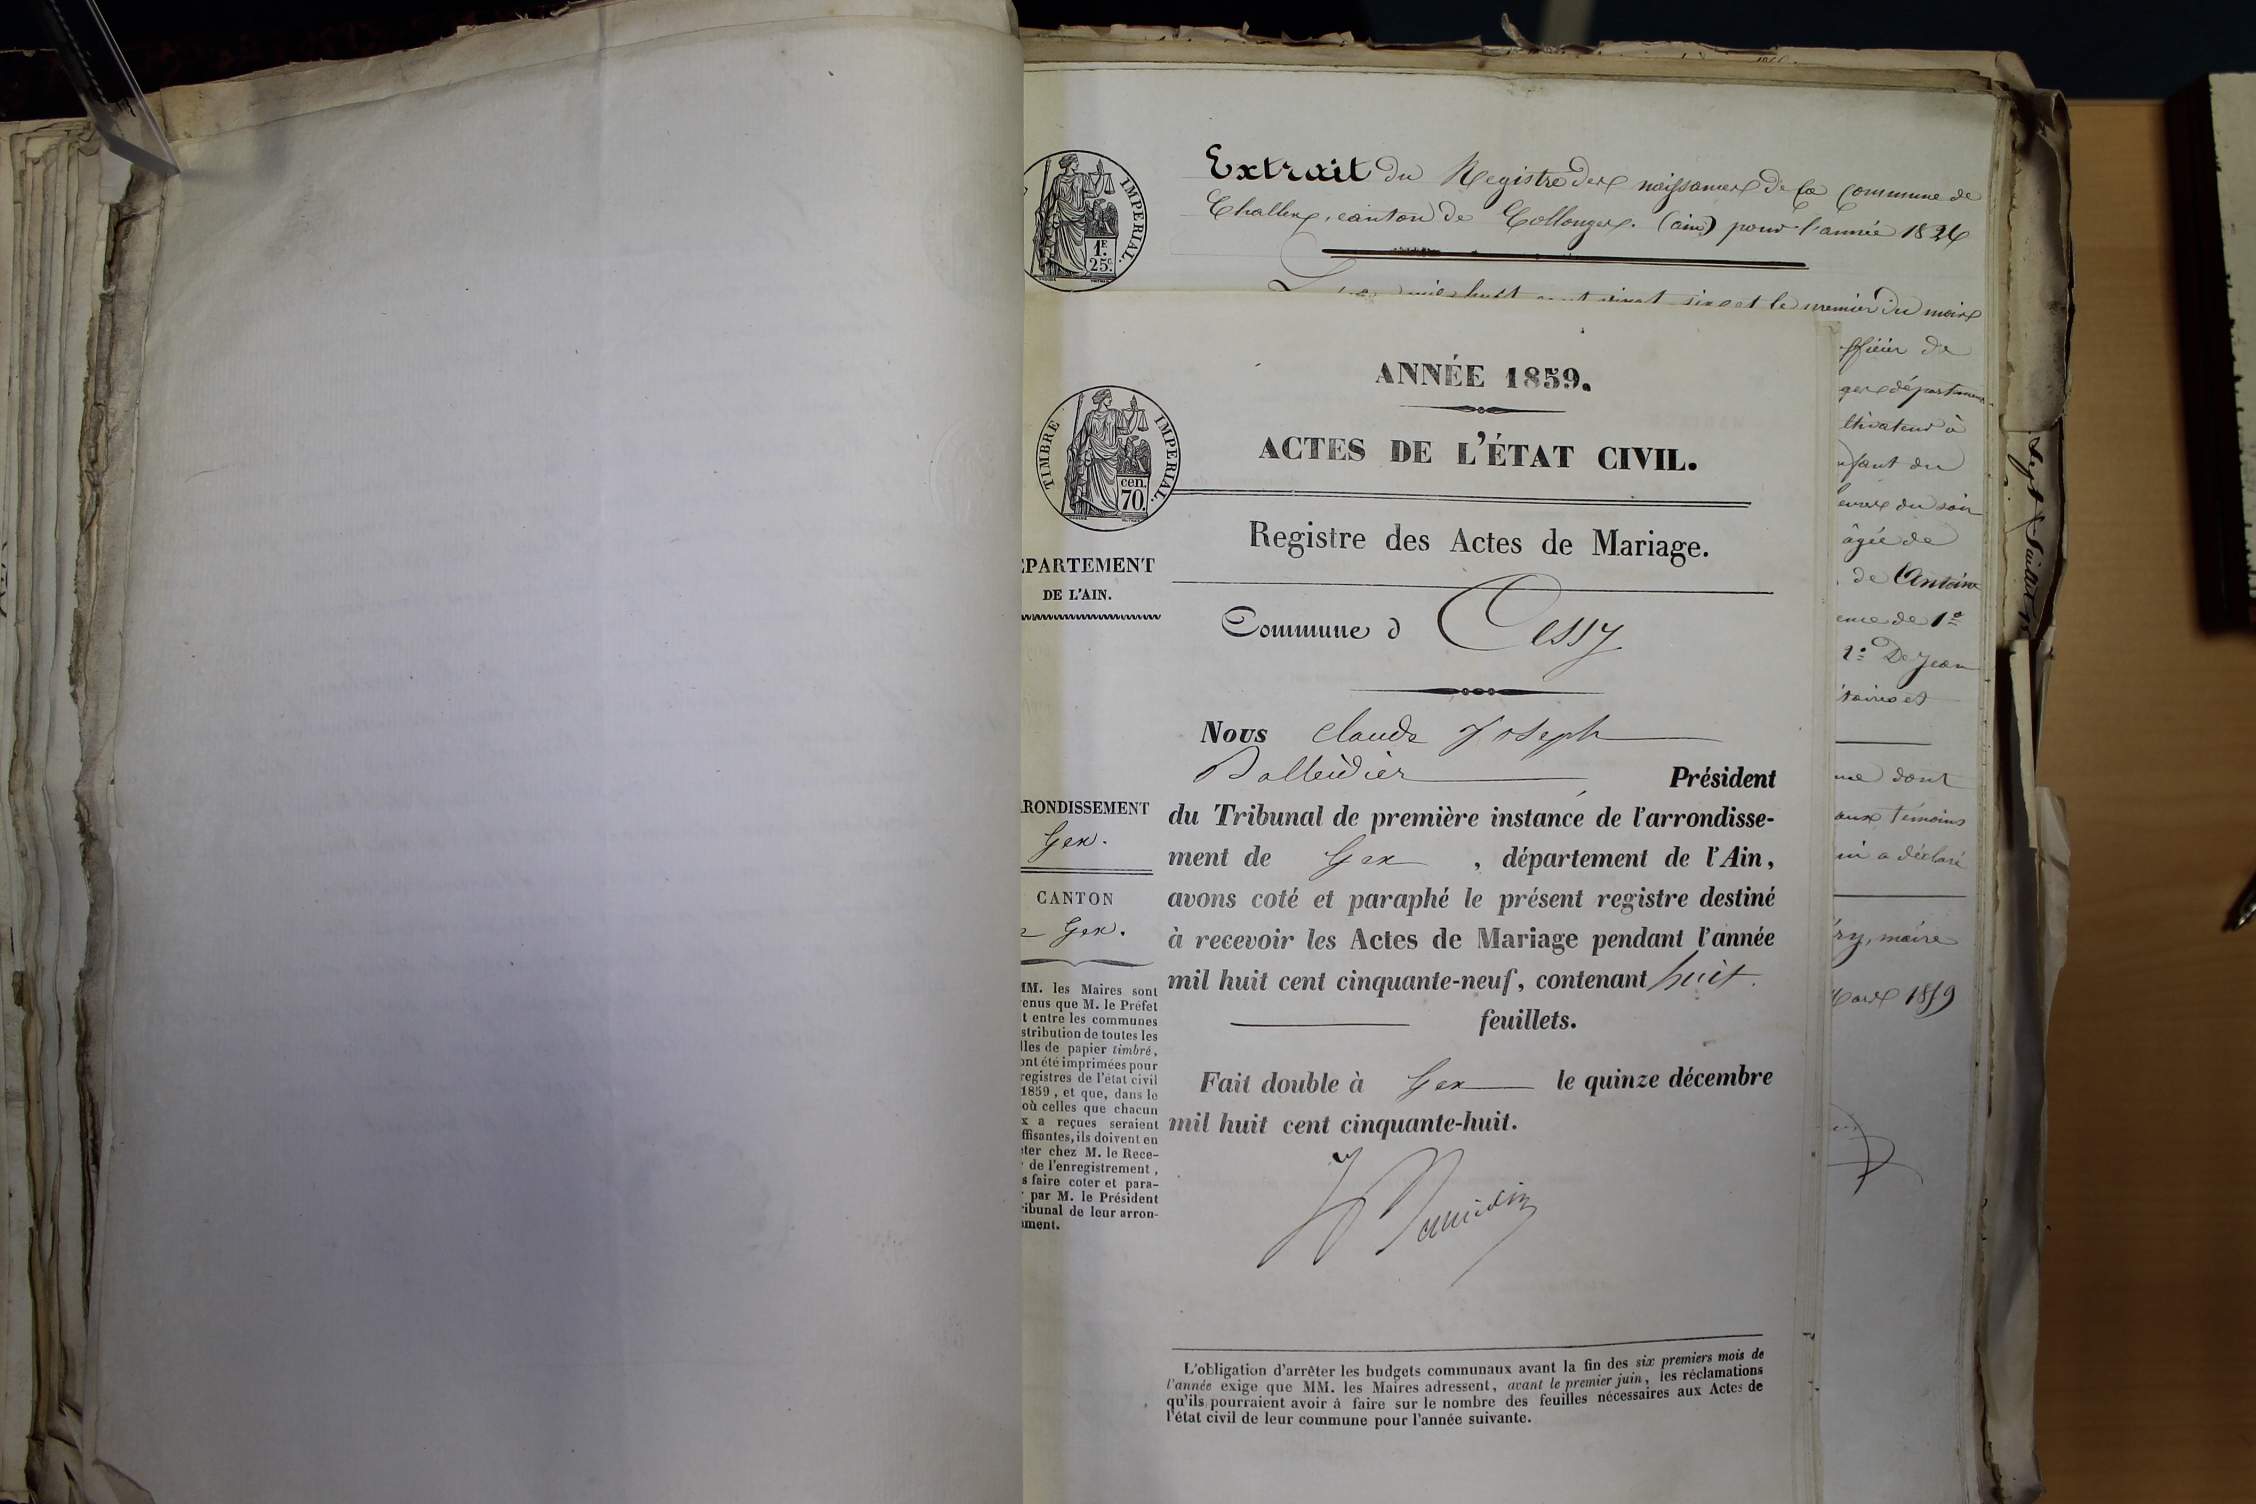 Extrait du Registre des naissances de la Commune de
Challex, canton de Collonges. (ain) pour l'année 1826
IMPERIAL.
1F.
25c.
mil huit cent vingt six et le premier du mois
officier de
cultivateur à
enfant du
du soir
âgée de
de Antoine
de 1º
2º De Jean
et
dont
aux témoins
a déclaré
maire
Mars 1859
Sept Juillet
ANNÉE 1859.
ACTES DE L'ÉTAT CIVIL.
TIMBRE IMPERIAL.
cen.
70.
Registre des Actes de Mariage.
EPARTEMENT
DE L'AIN.
Commune d Cessy
Nous Claude Joseph
Balleidier Président
du Tribunal de première instance de l'arrondisse-
ment de Gex , département de l'Ain,
avons coté et paraphé le présent registre destiné
à recevoir les Actes de Mariage pendant l'année
mil huit cent cinquante-neuf, contenant huit
feuillets.
Fait double à Gex le quinze décembre
mil huit cent cinquante-huit.
RRONDISSEMENT
Gex.
CANTON
Gex.
MM. les Maires sont
enus que M. le Préfet
t entre les communes
stribution de toutes les
lles de papier timbré,
ont été imprimées pour
registres de l'état civil
1859, et que, dans le
où celles que chacun
x a reçues seraient
ffisantes, ils doivent en
ter chez M. le Rece-
de l'enregistrement,
s faire coter et para-
par M. le Président
ribunal de leur arron-
ment.
L'obligation d'arrêter les budgets communaux avant la fin des six premiers mois de
l'année exige que MM. les Maires adressent, avant le premier juin, les réclamations
qu'ils pourraient avoir à faire sur le nombre des feuilles nécessaires aux Actes de
l'état civil de leur commune pour l'année suivante.